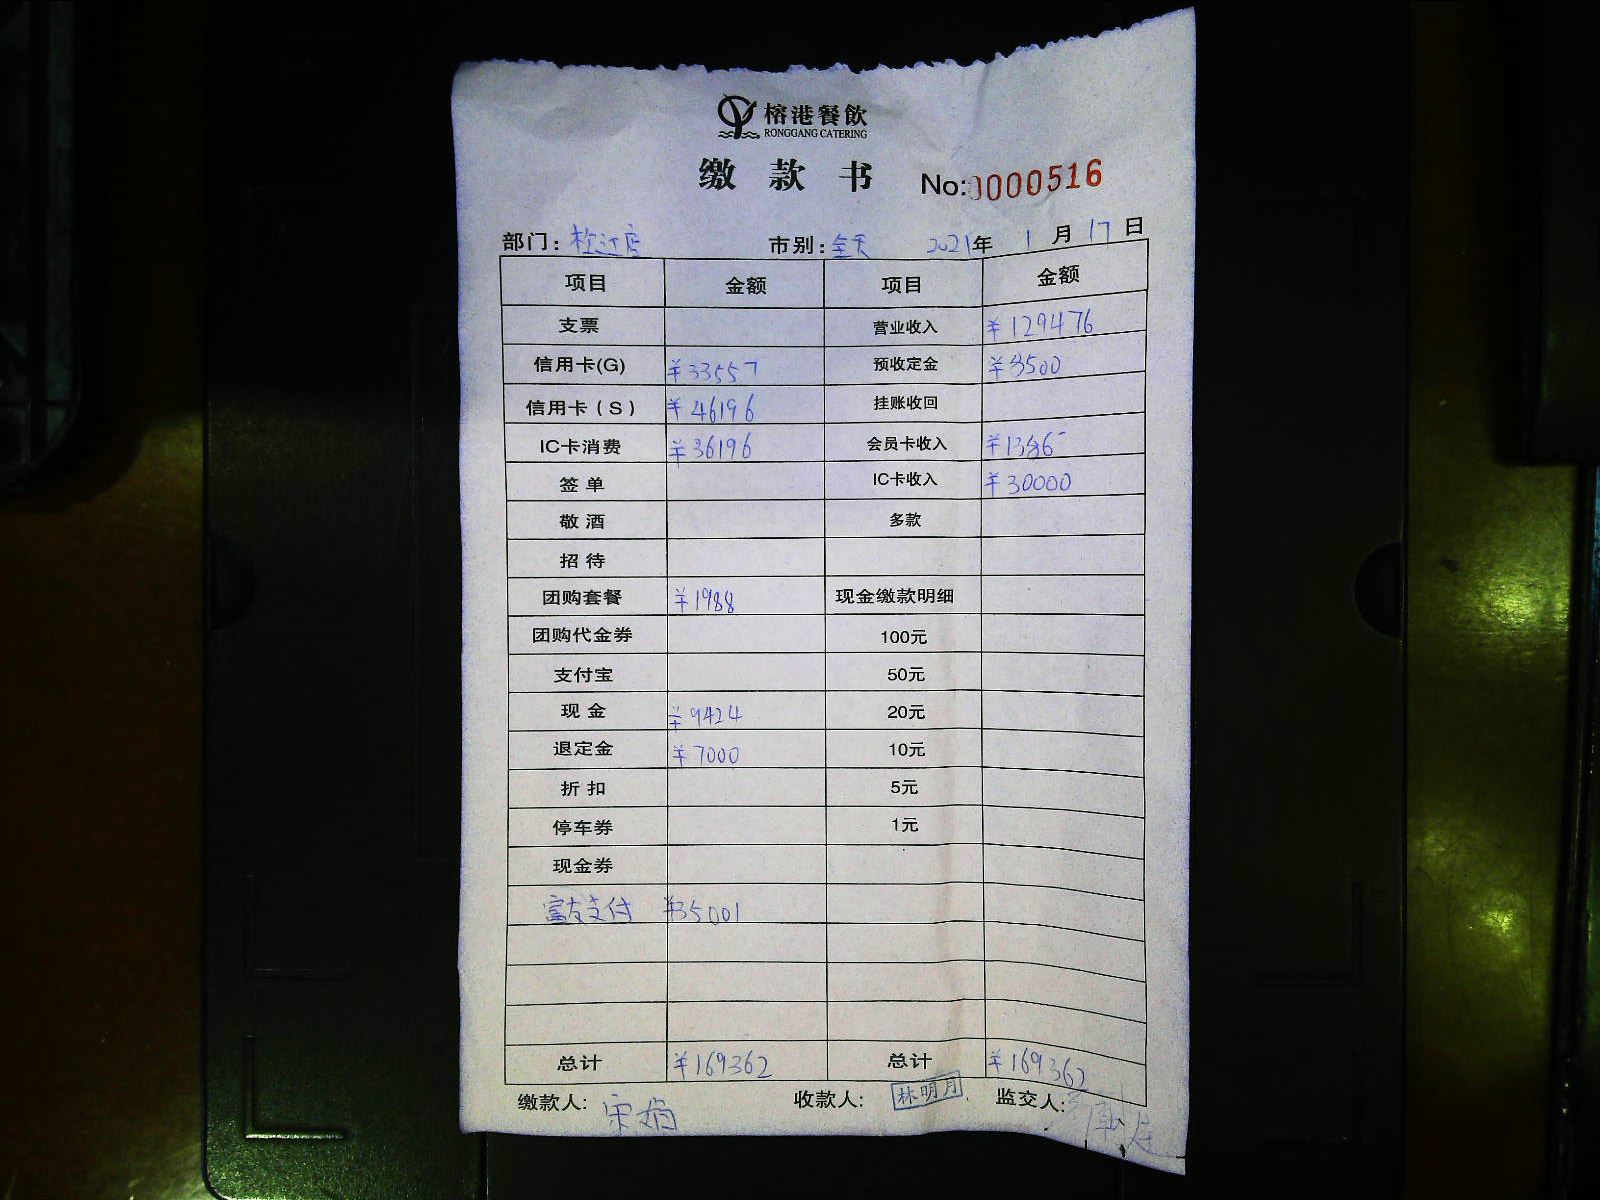 榕港餐飲
RONGGANG CATERING
缴款书 No:0000516
部门：松江店 市别：全天 2021年 1月17日
项目 金额 项目 金额
支票 营业收入 ¥129476
信用卡(G) ¥33557 预收定金 ¥8500
信用卡（S） ¥46196 挂账收回
IC卡消费 ¥36196 会员卡收入 ¥1386
签单 IC卡收入 ¥30000
敬酒 多款
招待
团购套餐 ¥1988 现金缴款明细
团购代金券 100元
支付宝 50元
现金 ¥9424 20元
退定金 ¥7000 10元
折扣 5元
停车券 1元
现金券
富友支付 ¥35001
总计 ¥169362 总计 ¥169362
缴款人: 宋娟 收款人: 林明月 监交人: